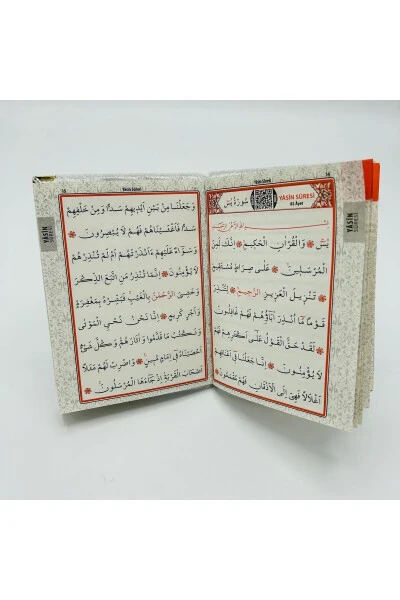 Yâsîn Sûresi
YÂSÎN SÛRESİ
83 Âyet
سُورَةُ يٰسٓ
بِسْمِ اللّٰهِ الرَّحْمٰنِ الرَّحِيمِ
يٰسٓ ۞ وَالْقُرْاٰنِ الْحَكِيمِ ۞ اِنَّكَ لَمِنَ
الْمُرْسَلِينَ ۞ عَلٰى صِرَاطٍ مُسْتَقِيمٍ ۞
تَنْزِيلَ الْعَزِيزِ الرَّحِيمِ ۞ لِتُنْذِرَ
قَوْمًا مَٓا اُنْذِرَ اٰبَٓاؤُهُمْ فَهُمْ غَافِلُونَ
۞ لَقَدْ حَقَّ الْقَوْلُ عَلٰٓى اَكْثَرِهِمْ فَهُمْ
لَا يُؤْمِنُونَ ۞ اِنَّا جَعَلْنَا فِٓي اَعْنَاقِهِمْ
اَغْلَالًا فَهِيَ اِلَى الْاَذْقَانِ فَهُمْ مُقْمَحُونَ ۞
YÂSÎN
SÛRESİ
Yâsîn Sûresi
وَجَعَلْنَا مِنْ بَيْنِ اَيْدِيهِمْ سَدًّا وَمِنْ خَلْفِهِمْ
سَدًّا فَاَغْشَيْنَاهُمْ فَهُمْ لَا يُبْصِرُونَ ۞
وَسَوَٓاءٌ عَلَيْهِمْ ءَاَنْذَرْتَهُمْ اَمْ لَمْ تُنْذِرْهُمْ
لَا يُؤْمِنُونَ ۞ اِنَّمَا تُنْذِرُ مَنِ اتَّبَعَ الذِّكْرَ
وَخَشِيَ الرَّحْمٰنَ بِالْغَيْبِ فَبَشِّرْهُ بِمَغْفِرَةٍ
وَاَجْرٍ كَرِيمٍ ۞ اِنَّا نَحْنُ نُحْيِي الْمَوْتٰى
وَنَكْتُبُ مَا قَدَّمُوا وَاٰثَارَهُمْ وَكُلَّ شَيْءٍ
اَحْصَيْنَاهُ فِٓي اِمَامٍ مُبِينٍ ۞ وَاضْرِبْ لَهُمْ مَثَلًا
اَصْحَابَ الْقَرْيَةِ اِذْ جَٓاءَهَا الْمُرْسَلُونَ ۞
YÂSÎN
SÛRESİ